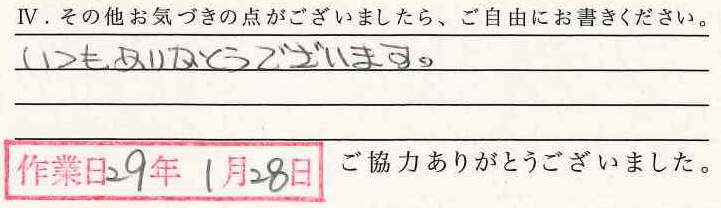 Ⅳ．その他お気づきの点がございましたら、ご自由にお書きください。
いつもありがとうございます。
作業日29年 1月28日
ご協力ありがとうございました。